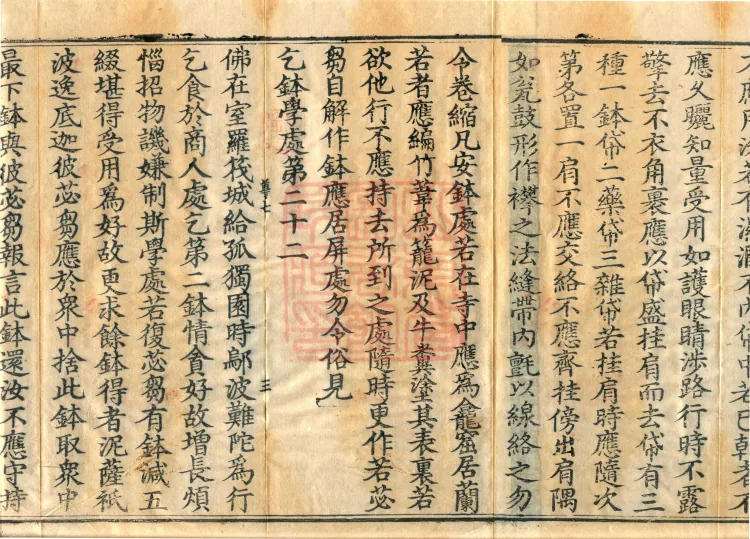 不滋潤不內帒中若已乾者不
應久曬知量受用如護眼睛涉路行時不露
擎去不衣角裏應以帒盛挂肩而去帒有三
種一鉢帒二藥帒三雜帒若挂肩時應隨次
第各置一肩不應交絡不應齊挂傍出肩隅
如瓮鼓形作襻之法縫帶內氈以線絡之勿
令卷縮凡安鉢處若在寺中應爲龕窟居蘭
若者應編竹葦爲籠泥及牛糞塗其表裏若
欲他行不應持去所到之處隨時更作若苾
芻自解作鉢應居屏處勿令俗見
乞鉢學處第二十二
尊七 三
佛在室羅筏城給孤獨園時鄔波難陀爲行
乞食於商人處乞第二鉢情貪好故增長煩
惱招物譏嫌制斯學處若復苾芻有鉢減五
綴堪得受用爲好故更求餘鉢得者泥薩祇
波逸底迦彼苾芻應於衆中捨此鉢取衆中
最下鉢與彼苾芻報言此鉢還汝不應守持